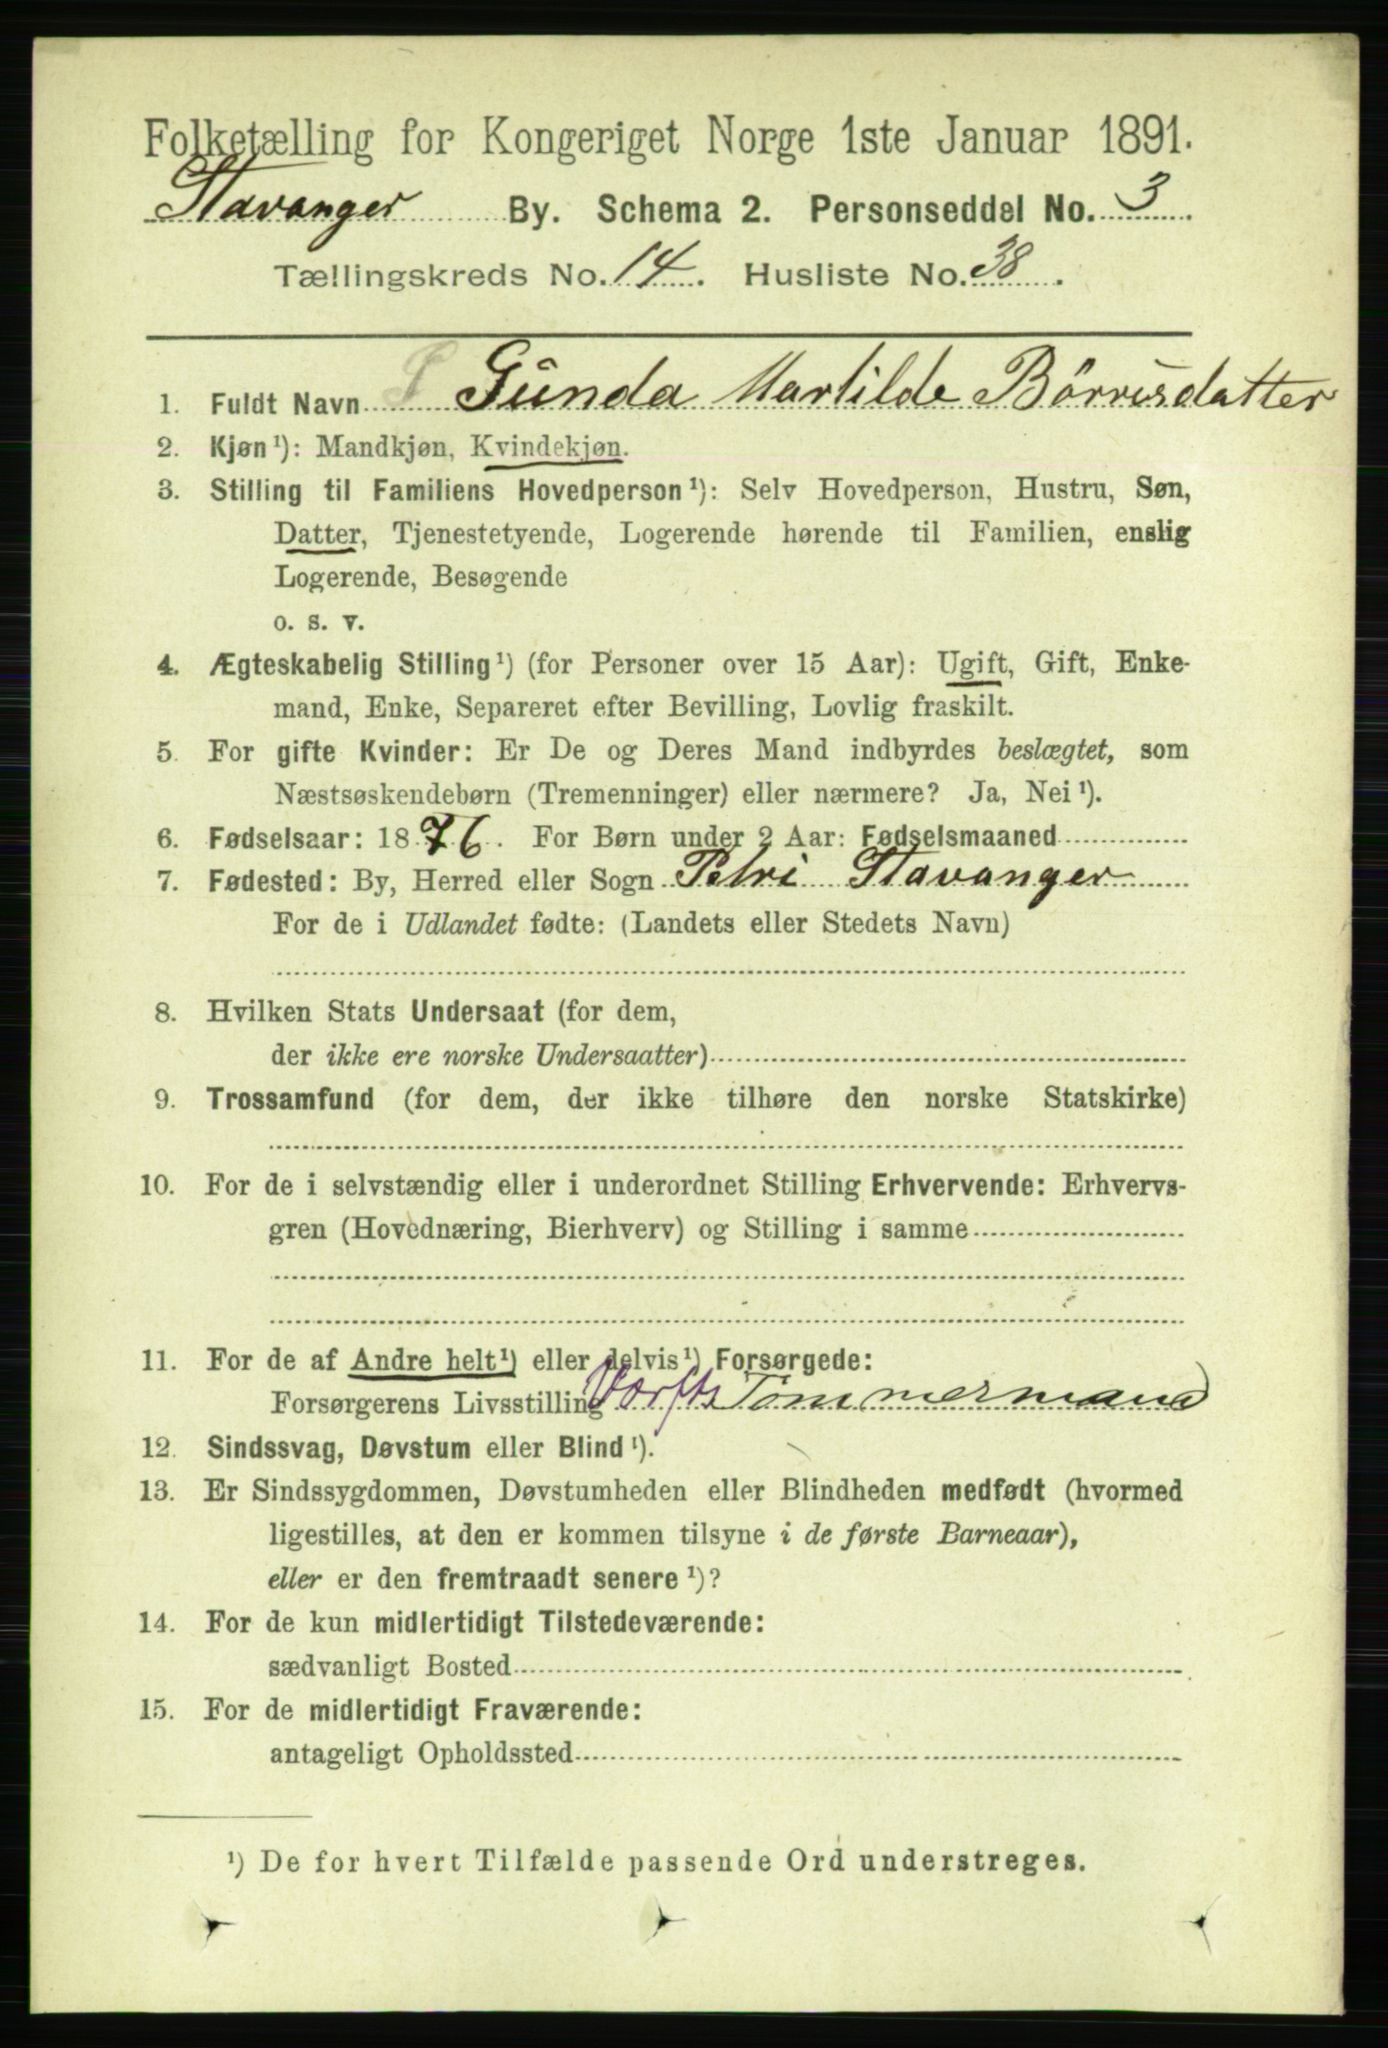 Folketælling for Kongeriget Norge 1ste Januar 1891.
Stavanger By. Schema 2. Personseddel No. 3
Tællingskreds No. 14. Husliste No. 38.
1. Fuldt Navn Gunda Martilde Börresdatter
2. Kjøn¹): Mandkjøn, Kvindekjøn.
3. Stilling til Familiens Hovedperson¹): Selv Hovedperson, Hustru, Søn,
Datter, Tjenestetyende, Logerende hørende til Familien, enslig
Logerende, Besøgende
o. s. v.
4. Ægteskabelig Stilling¹) (for Personer over 15 Aar): Ugift, Gift, Enke-
mand, Enke, Separeret efter Bevilling, Lovlig fraskilt.
5. For gifte Kvinder: Er De og Deres Mand indbyrdes beslægtet, som
Næstsøskendebørn (Tremenninger) eller nærmere? Ja, Nei¹).
6. Fødselsaar: 1876. For Børn under 2 Aar: Fødselsmaaned
7. Fødested: By, Herred eller Sogn Petri Stavanger
For de i Udlandet fødte: (Landets eller Stedets Navn)
8. Hvilken Stats Undersaat (for dem,
der ikke ere norske Undersaatter)
9. Trossamfund (for dem, der ikke tilhøre den norske Statskirke)
10. For de i selvstændig eller i underordnet Stilling Erhvervende: Erhvervs-
gren (Hovednæring, Bierhverv) og Stilling i samme
11. For de af Andre helt¹) eller delvis¹) Forsørgede:
Forsørgerens Livsstilling Værfts Tømmermand
12. Sindssvag, Døvstum eller Blind¹).
13. Er Sindssygdommen, Døvstumheden eller Blindheden medfødt (hvormed
ligestilles, at den er kommen tilsyne i de første Barneaar),
eller er den fremtraadt senere¹)?
14. For de kun midlertidigt Tilstedeværende:
sædvanligt Bosted
15. For de midlertidigt Fraværende:
antageligt Opholdssted
¹) De for hvert Tilfælde passende Ord understreges.